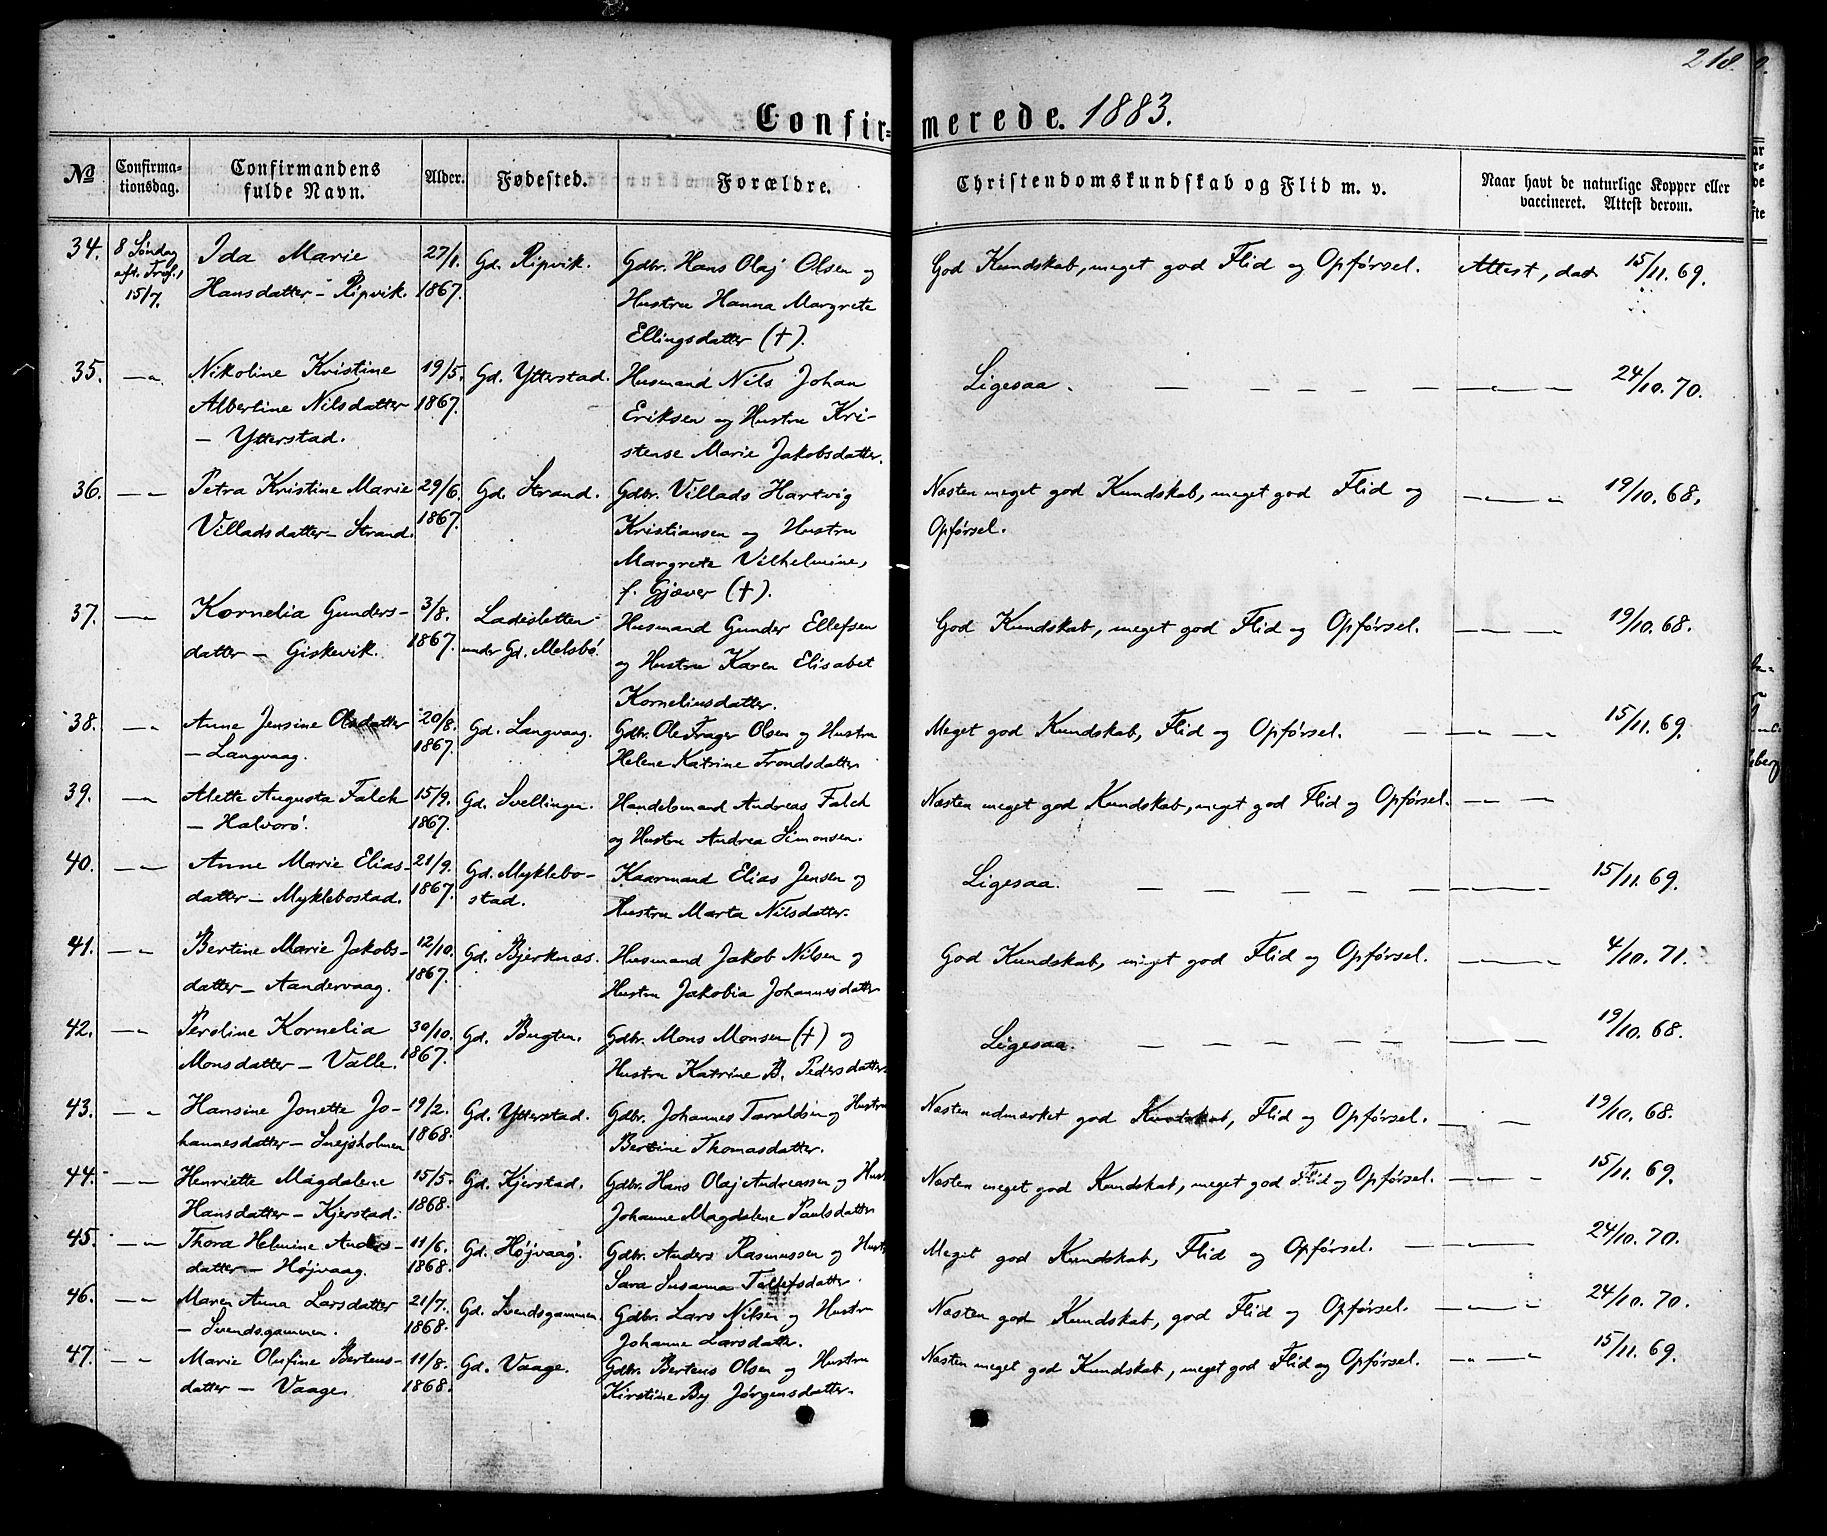 218.
Confirmerede. 1883.
No
Confirmationsdag.
Confirmandens fulde Navn.
Alder.
Fødested.
Forældre.
Christendomskundskab og Flid m. v.
Naar havt de naturlige Kopper eller vaccineret. Attest derom.
34. 8 Søndag Ida Marie 27/1. Gd. Ripvik. Gdbr. Hans Olaj Olsen og God Kundskab, meget god Flid og Opførsel. Attest, dat 15/11. 69.
eft. Tref. Hansdatter – Ripvik. 1867. Hustru Hanna Margrete
15/7. Ellingsdatter (†).
35. —„— Nikoline Kristine 19/5. Gd. Ytterstad. Husmand Nils Johan Ligesaa. — — — — —„— 24/10. 70.
Albertine Nilsdatter 1867. Eriksen og Hustru Kri-
– Ytterstad. stense Marie Jakobsdatter.
36. —„— Petra Kristine Marie 29/6. Gd. Strand. Gdbr. Villads Hartvig Næsten meget god Kundskab, meget god Flid og —„—„ 19/10. 68.
Villadsdatter – Strand. 1867. Kristiansen og Hustru Opførsel.
Margrete Vilhelmine,
f. Gjæver (†).
37. —„— Kornelia Gunders- 3/8. Ladesletten Husmand Gunder Ellefsen God Kundskab, meget god Flid og Opførsel. —„—„ 19/10. 68.
datter – Giskevik. 1867. under Gd. Melsbø. og Hustru Karen Elisabet
Korneliusdatter.
38. —„ Anne Jensine Olsdatter 20/8. Gd. Langvaag. Gdbr. Ole Trager Olsen og Hustru Meget god Kundskab, Flid og Opførsel. — —„—„ 15/11. 69.
– Langvaag. 1867. Helene Katrine Trondsdatter
39. —„ Alette Augusta Falck 15/9. Gd. Svellingen. Handelsmand Andreas Falck Næsten meget god Kundskab, meget god Flid og Opførsel. —„—
– Halvorø. 1867. og Hustru Andrea Simonsen.
40. —„— Anne Marie Elias- 21/9. Gd. Myklebo- Kaarmand Elias Jensen og Ligesaa. — — — — —„— 15/11. 69.
datter – Myklebostad. 1867. stad. Hustru Marta Nilsdatter.
41. —„ Bertine Marie Jakobs- 12/10. Gd. Bjerknæs. Husmand Jakob Nilsen og God Kundskab, meget god Flid og Opførsel. —„—„ 4/10. 71.
datter – Aandervaag. 1867. Hustru Jakobia Johannesdatter
42. —„ Peroline Kornelia 30/10. Gd. Bugten. Gdbr. Mons Monsen (†) og Ligesaa. — — — — — —„— 19/10. 68.
Monsdatter – Valle. 1867. Hustru Katrine B. Pedersdatter
43. —„ Hansine Jonette Jo- 19/2. Gd. Ytterstad. Gdbr. Johannes Taraldsen og Hustru Næsten udmærket god Kundskab, Flid og Opførsel. —„— 19/10. 68.
hannesdatter – Snejsholmen 1868. Bertine Thomasdatter.
44. —„ Henriette Magdalene 15/5. Gd. Kjerstad. Gdbr. Hans Olaj Andreassen og Hust. Næsten meget god Kundskab, meget god Flid og Opførsel. —„—„ 15/11. 69.
Hansdatter – Kjerstad. 1868. Johanne Magdalene Paulsdatter
45. —„— Thora Helmine Anders- 11/6. Gd. Højvaag. Gdbr. Anders Rasmussen og Hust. Meget god Kundskab, Flid og Opførsel. — —„— 24/10. 70.
datter – Højvaag. 1868. Sara Susanna Tollefsdatter.
46. —„ Maren Anna Larsdatter 21/7. Gd. Svendsgammen. Gdbr. Lars Nilsen og Hustru Næsten god Kundskab, god Flid og Opførsel. —„—„ 24/10. 70.
– Svendsgammen. 1868. Johanne Larsdatter.
47. —„ Marie Olufine Bertens- 11/8. Gd. Vaage. Gdbr. Bertens Olsen og Hustru Næsten meget god Kundskab, meget god Flid og Opførsel. —„—„ 15/11. 69.
datter – Vaage. 1868. Kirstine By Jørgensdatter.